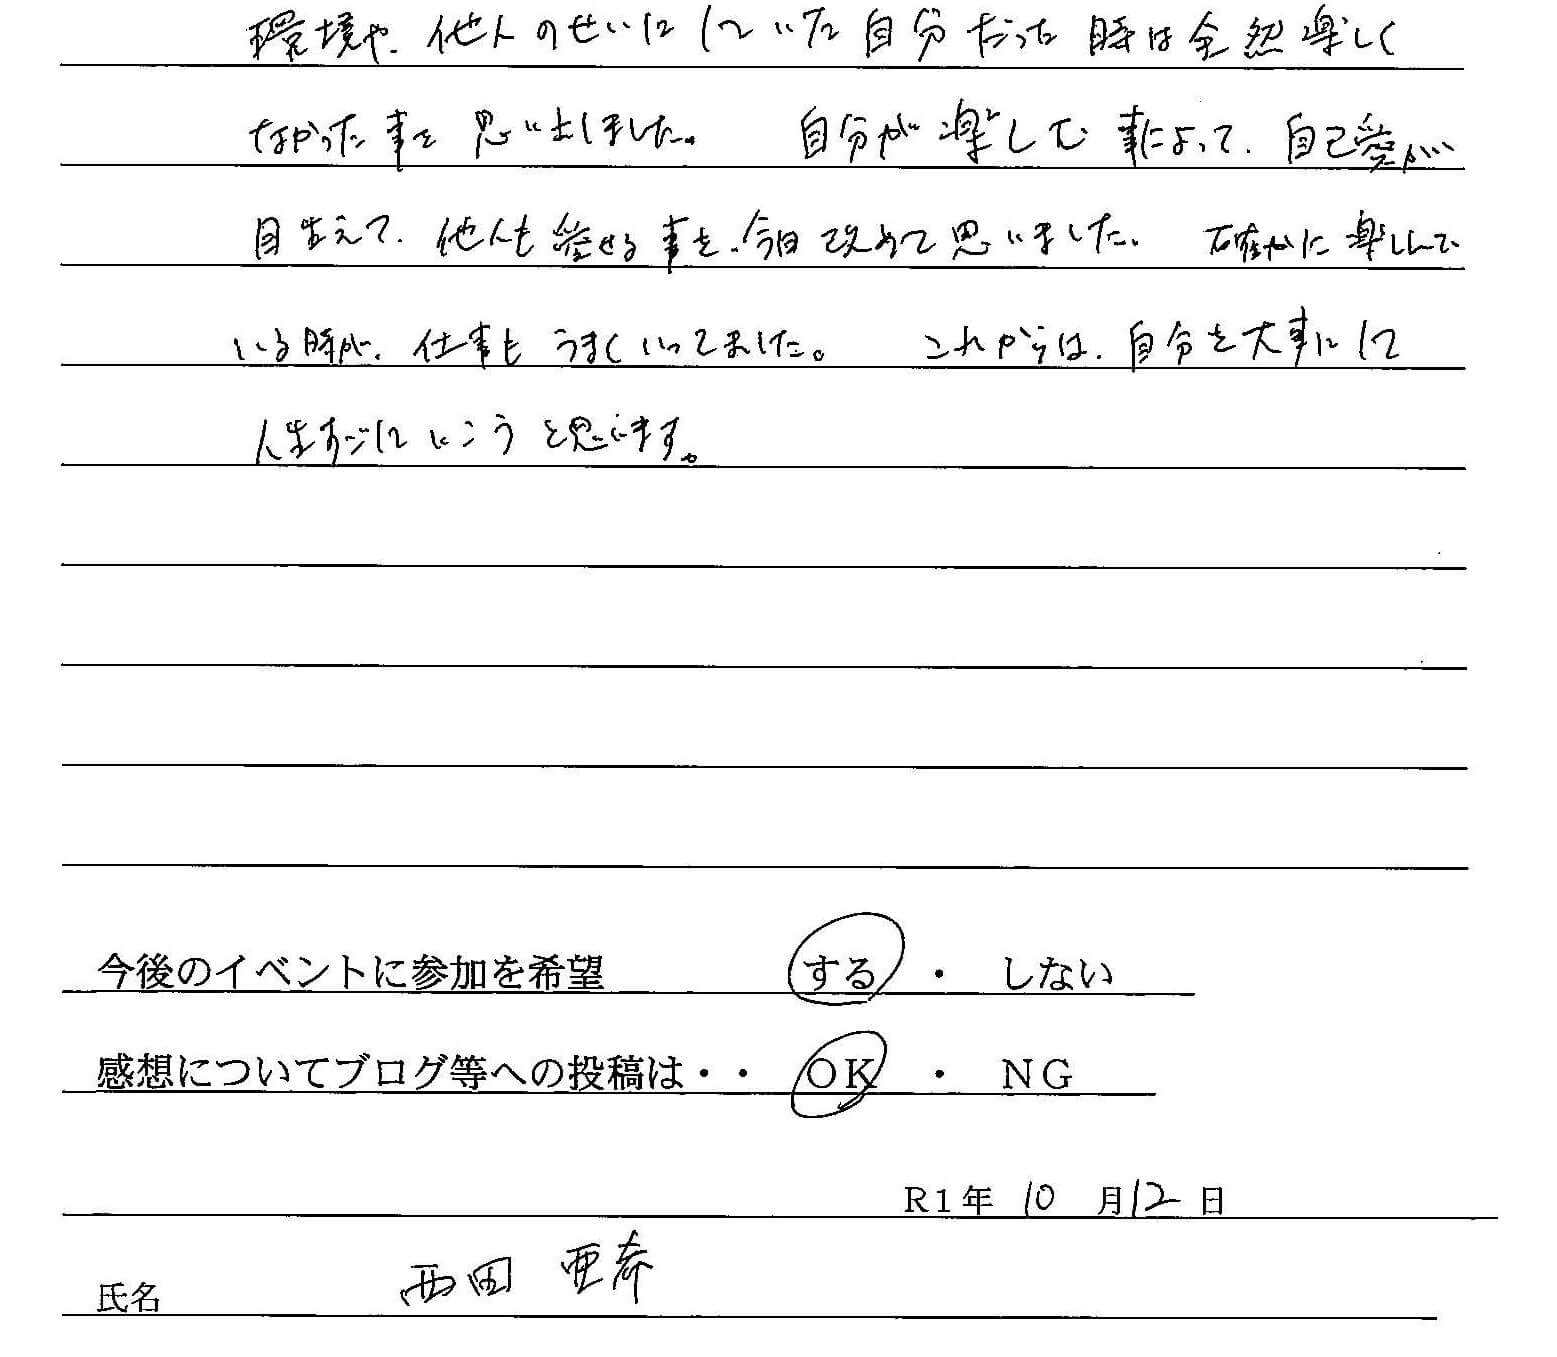 環境や、他人のせいにしていた自分だった時は全然楽しく
なかった事を思い出しました。 自分が楽しむ事によって、自己愛が
目生えて、他人も愛せる事を、今日改めて思いました。 確かに楽しんで
いる時が、仕事もうまくいってました。 これからは、自分を大事にして
人生すごしていこうと思います。
今後のイベントに参加を希望 する ・ しない
感想についてブログ等への投稿は・・ OK ・ NG
R1年 10 月 12 日
氏名 西田 亜希